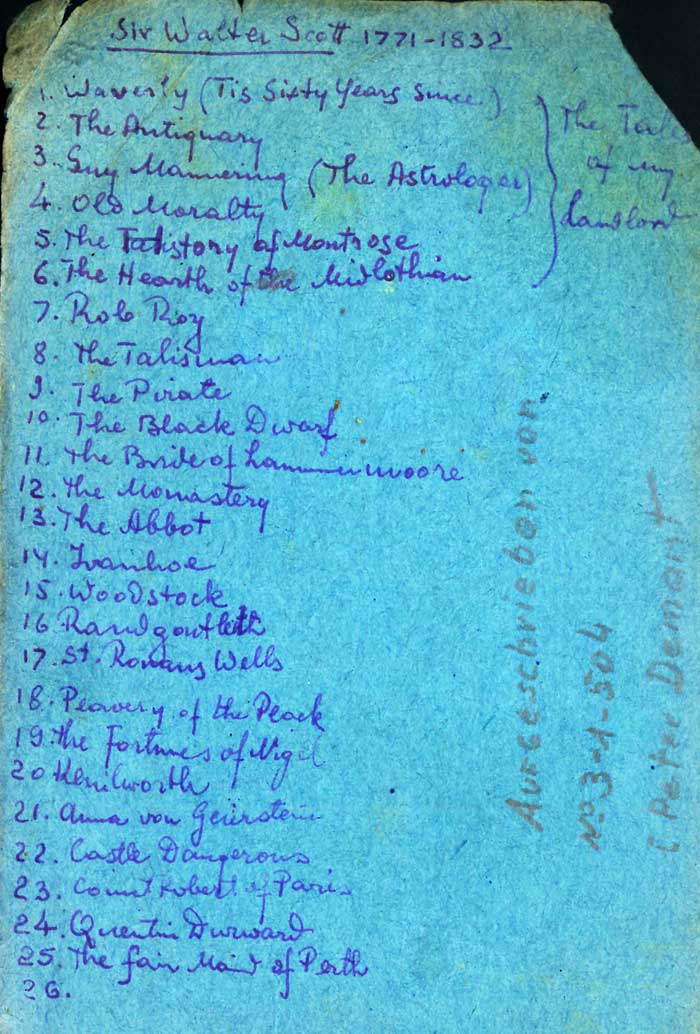 Sir Walter Scott 1771-1832
1. Waverly (Tis Sixty Years Since.)
2. The Antiquary
3. Guy Mannering (The Astrologer)
4. Old Moralty
5. The History of Montrose
6. The Hearth of the Midlothian
The Tales
of my
Landlord
7. Rob Roy
8. The Talisman
9. The Pirate
10. The Black Dwarf
11. The Bride of Lammermoore
12. The Monastery
13. The Abbot
14. Ivanhoe
15. Woodstock
16. Randgontleth
17. St. Romans Wells
18. Peavery of the Peack
19. The Fortunes of Nigel
20. Kenilworth
21. Anna von Geierstein
22. Castle Dangerous
23. Count Robert of Paris
24. Quentin Durward
25. The fair Maid of Perth
26.
Aufgeschrieben von
No 3-1-504
(Peter Demant